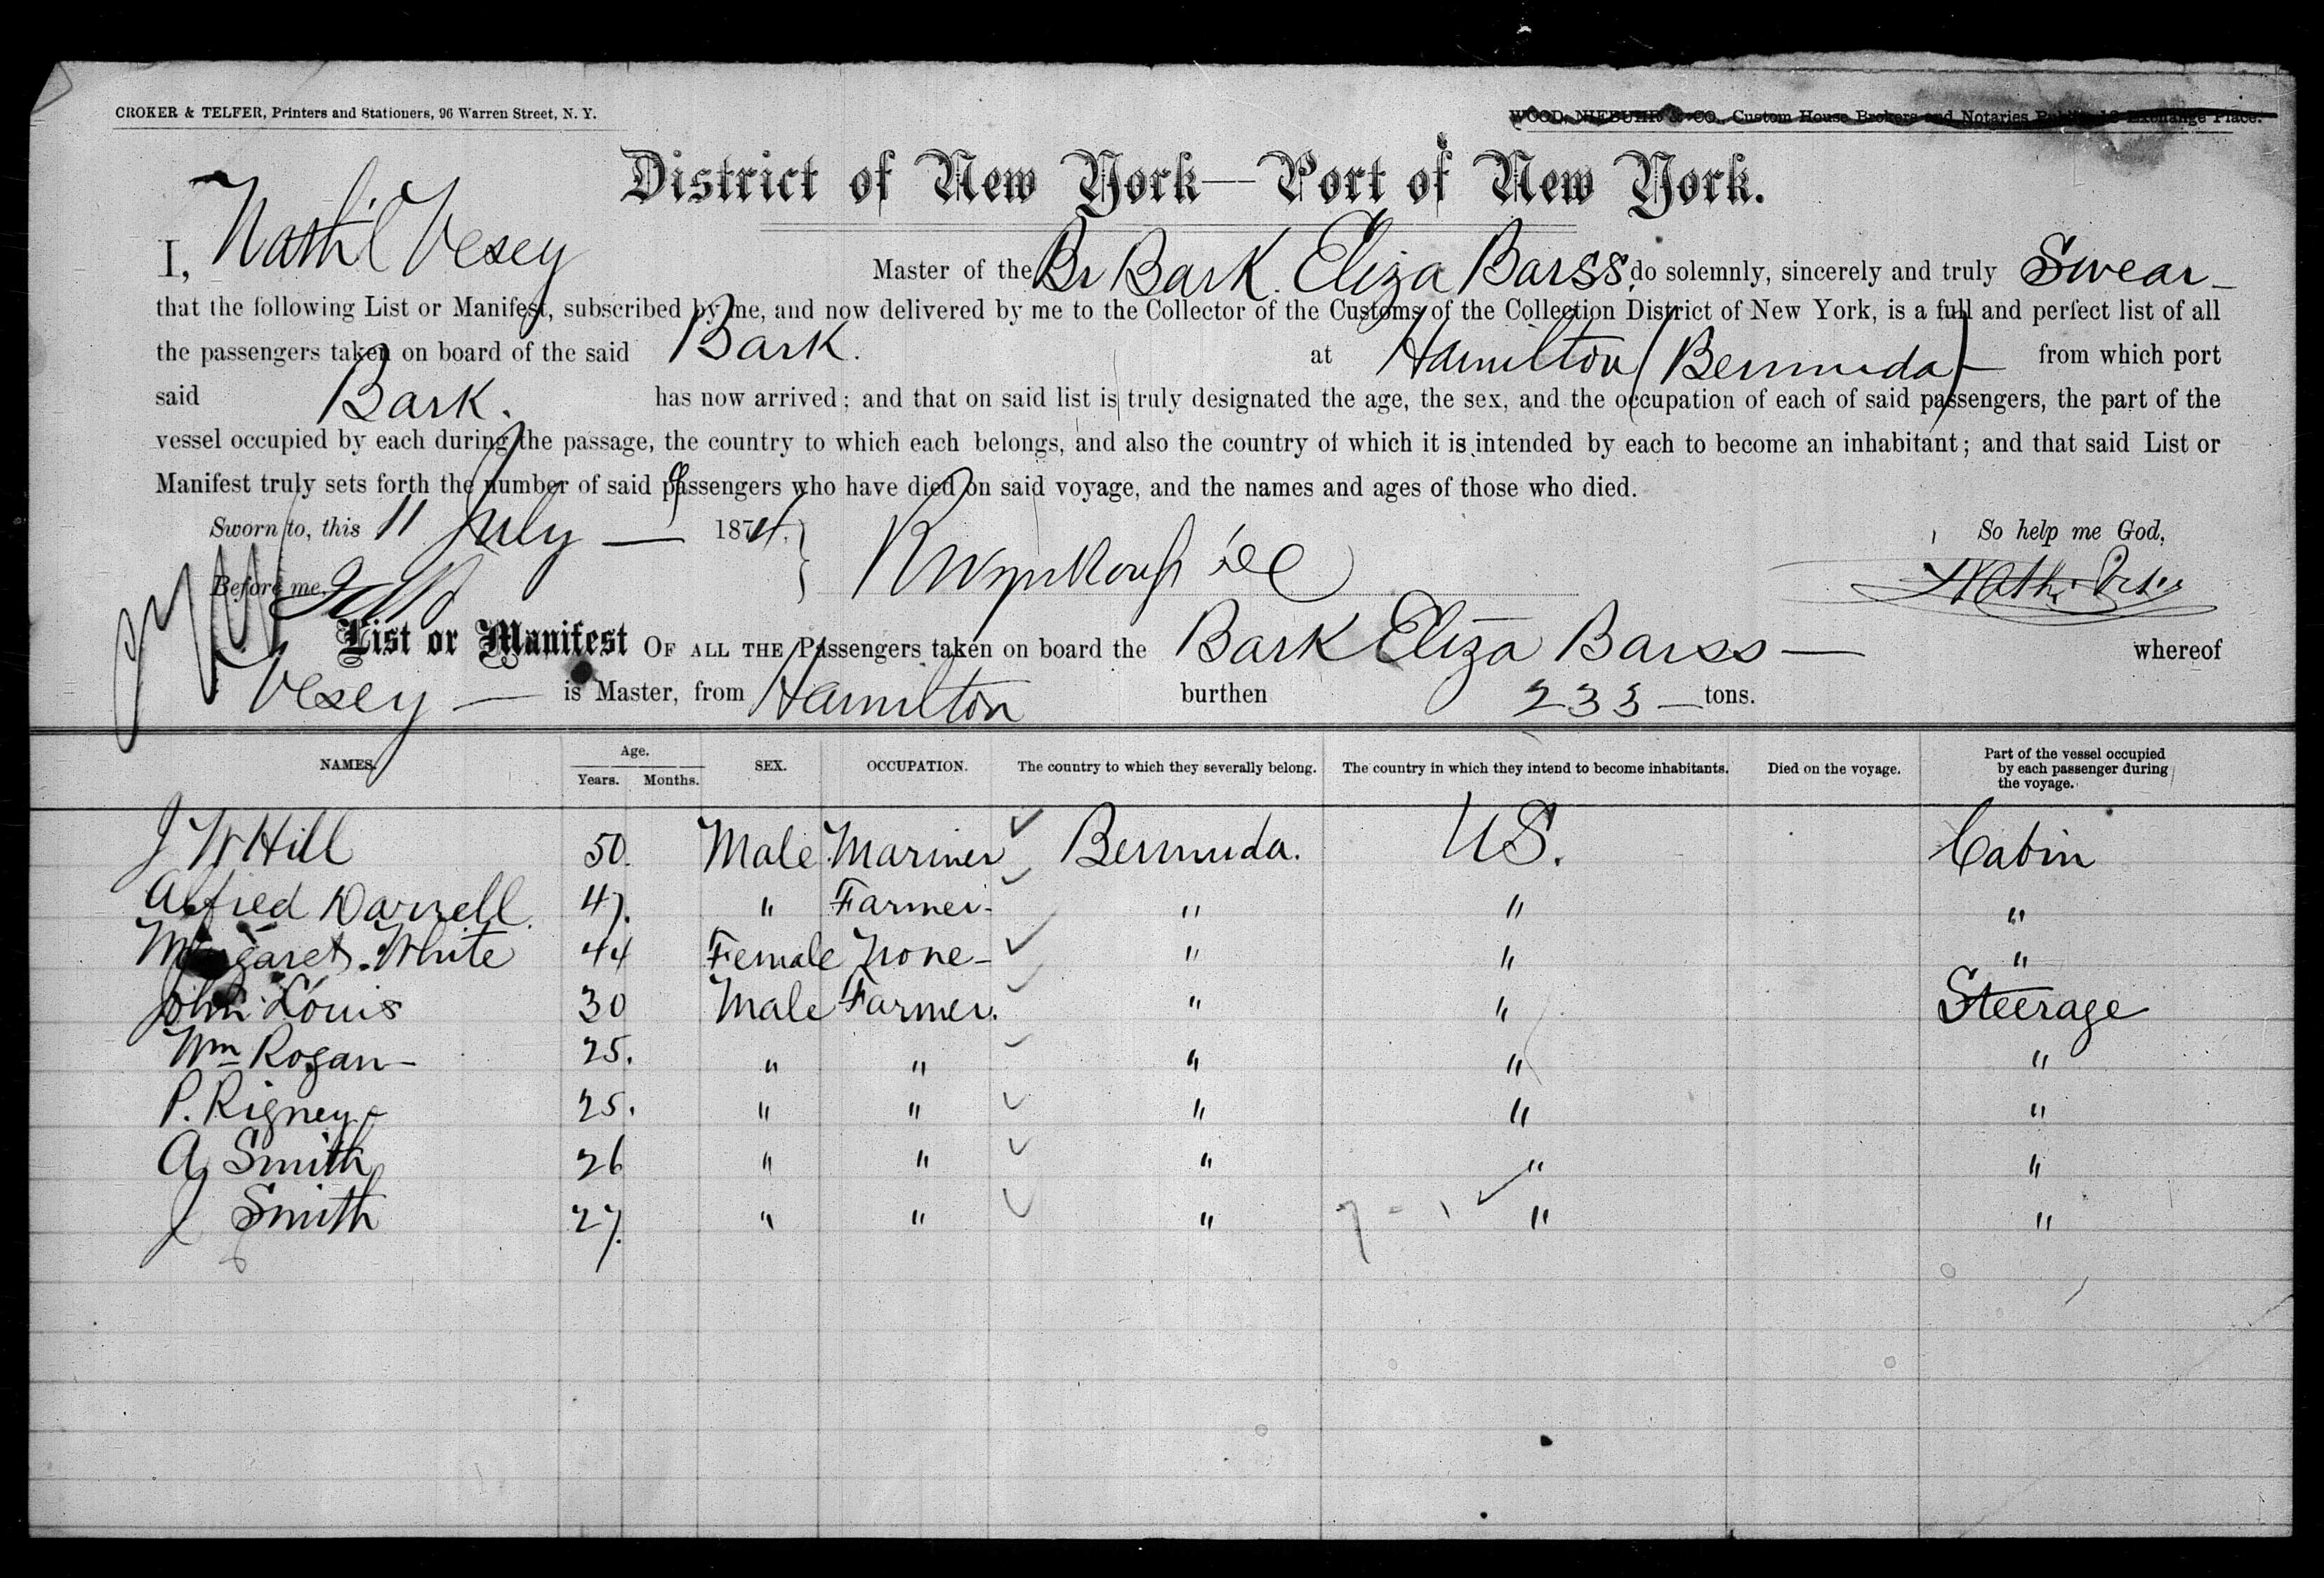 CROKER & TELFER, Printers and Stationers, 96 Warren Street, N. Y.
WOOD, NIEBUHR & CO., Custom House Brokers and Notaries Public, 18 Exchange Place.
District of New York—Port of New York.
I, Nath'l Vesey Master of the Br Bark. Eliza Barss, do solemnly, sincerely and truly Swear
that the following List or Manifest, subscribed by me, and now delivered by me to the Collector of the Customs of the Collection District of New York, is a full and perfect list of all
the passengers taken on board of the said Bark. at Hamilton (Bermuda) from which port
said Bark. has now arrived; and that on said list is truly designated the age, the sex, and the occupation of each of said passengers, the part of the
vessel occupied by each during the passage, the country to which each belongs, and also the country of which it is intended by each to become an inhabitant; and that said List or
Manifest truly sets forth the number of said passengers who have died on said voyage, and the names and ages of those who died.
Sworn to, this 11 July — 1874. So help me God,
Before me, Nath. Vesey
List or Manifest OF ALL THE Passengers taken on board the Bark Eliza Barss — whereof
Vesey — is Master, from Hamilton burthen 233 — tons.
NAMES. Age. Years. Months. SEX. OCCUPATION. The country to which they severally belong. The country in which they intend to become inhabitants. Died on the voyage. Part of the vessel occupied by each passenger during the voyage.
J W Hill 50. Male Mariner Bermuda. US. Cabin
Alfred Darrell 47. " Farmer " " "
Margaret White 44 Female None — " " "
John Louis 30 Male Farmer. " " Steerage
Wm Rogan — 25. " " " " "
P. Rigney 25. " " " " "
A Smith 26 " " " " "
J Smith 27. " " " " "